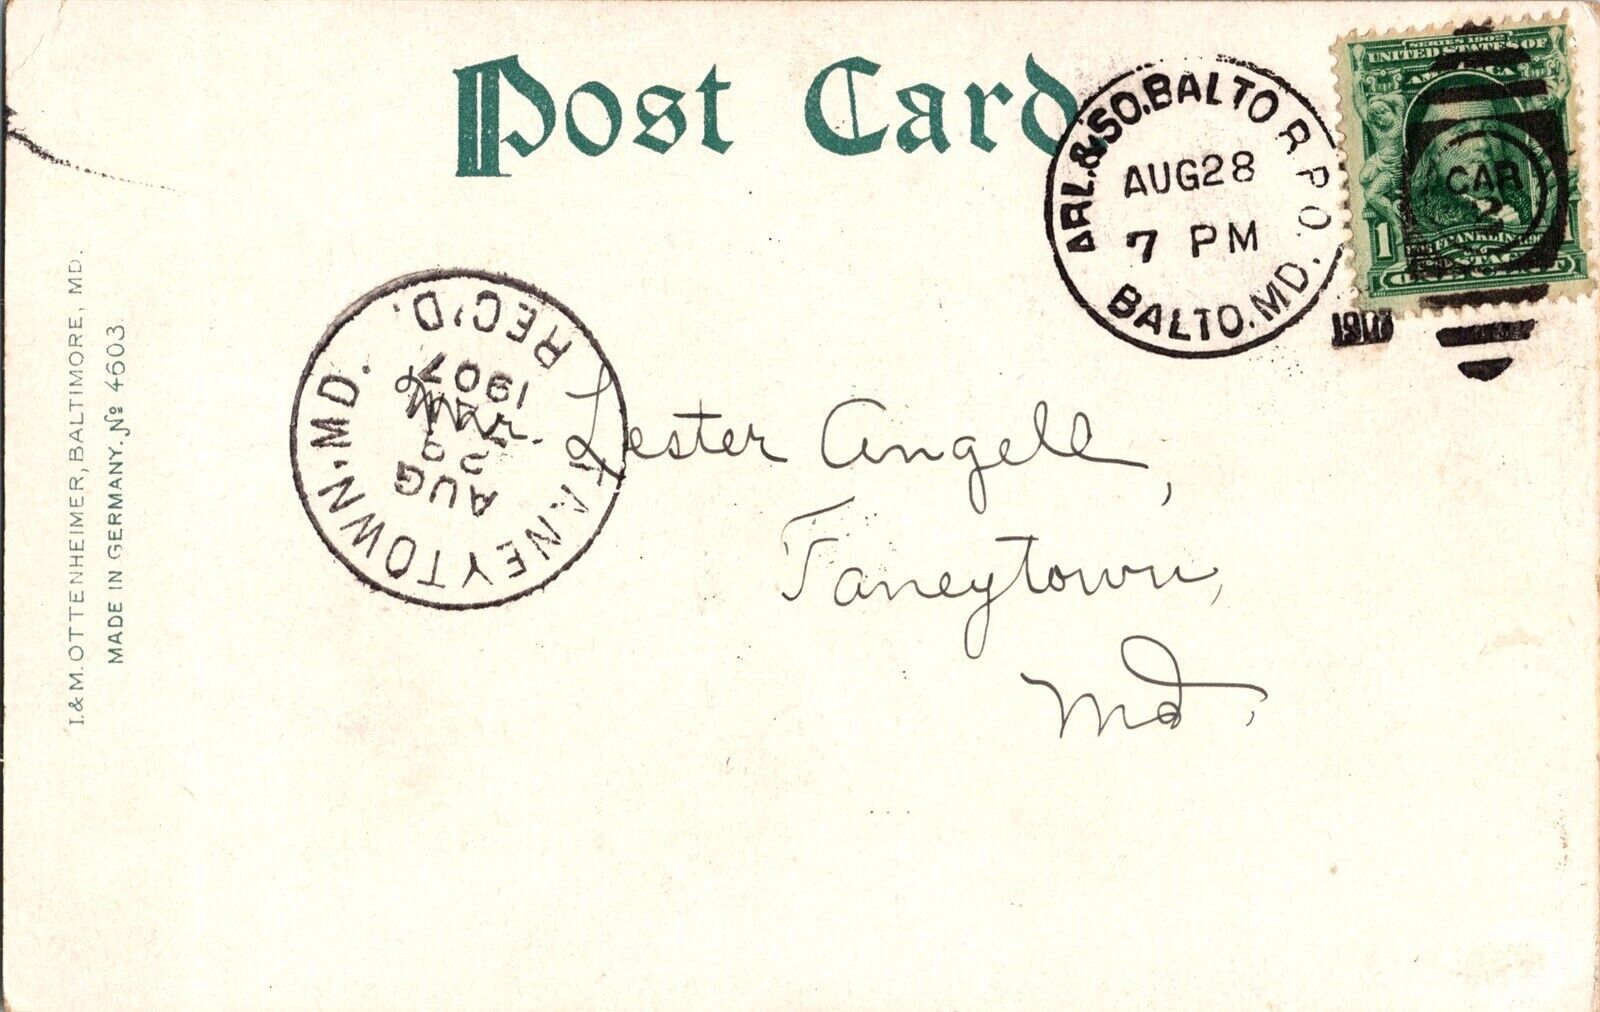 Post Card
ARL.&SO.BALTO R.P.O.
AUG28
7 PM
BALTO.MD.
SERIES 1902
UNITED STATES OF
AMERICA
1
FRANKLIN
CAR
2
TANEYTOWN.MD.
AUG
1907
REC'D.
Lester Angell,
Taneytown,
Md.
I.& M. OTTENHEIMER, BALTIMORE, MD.
MADE IN GERMANY. № 4603